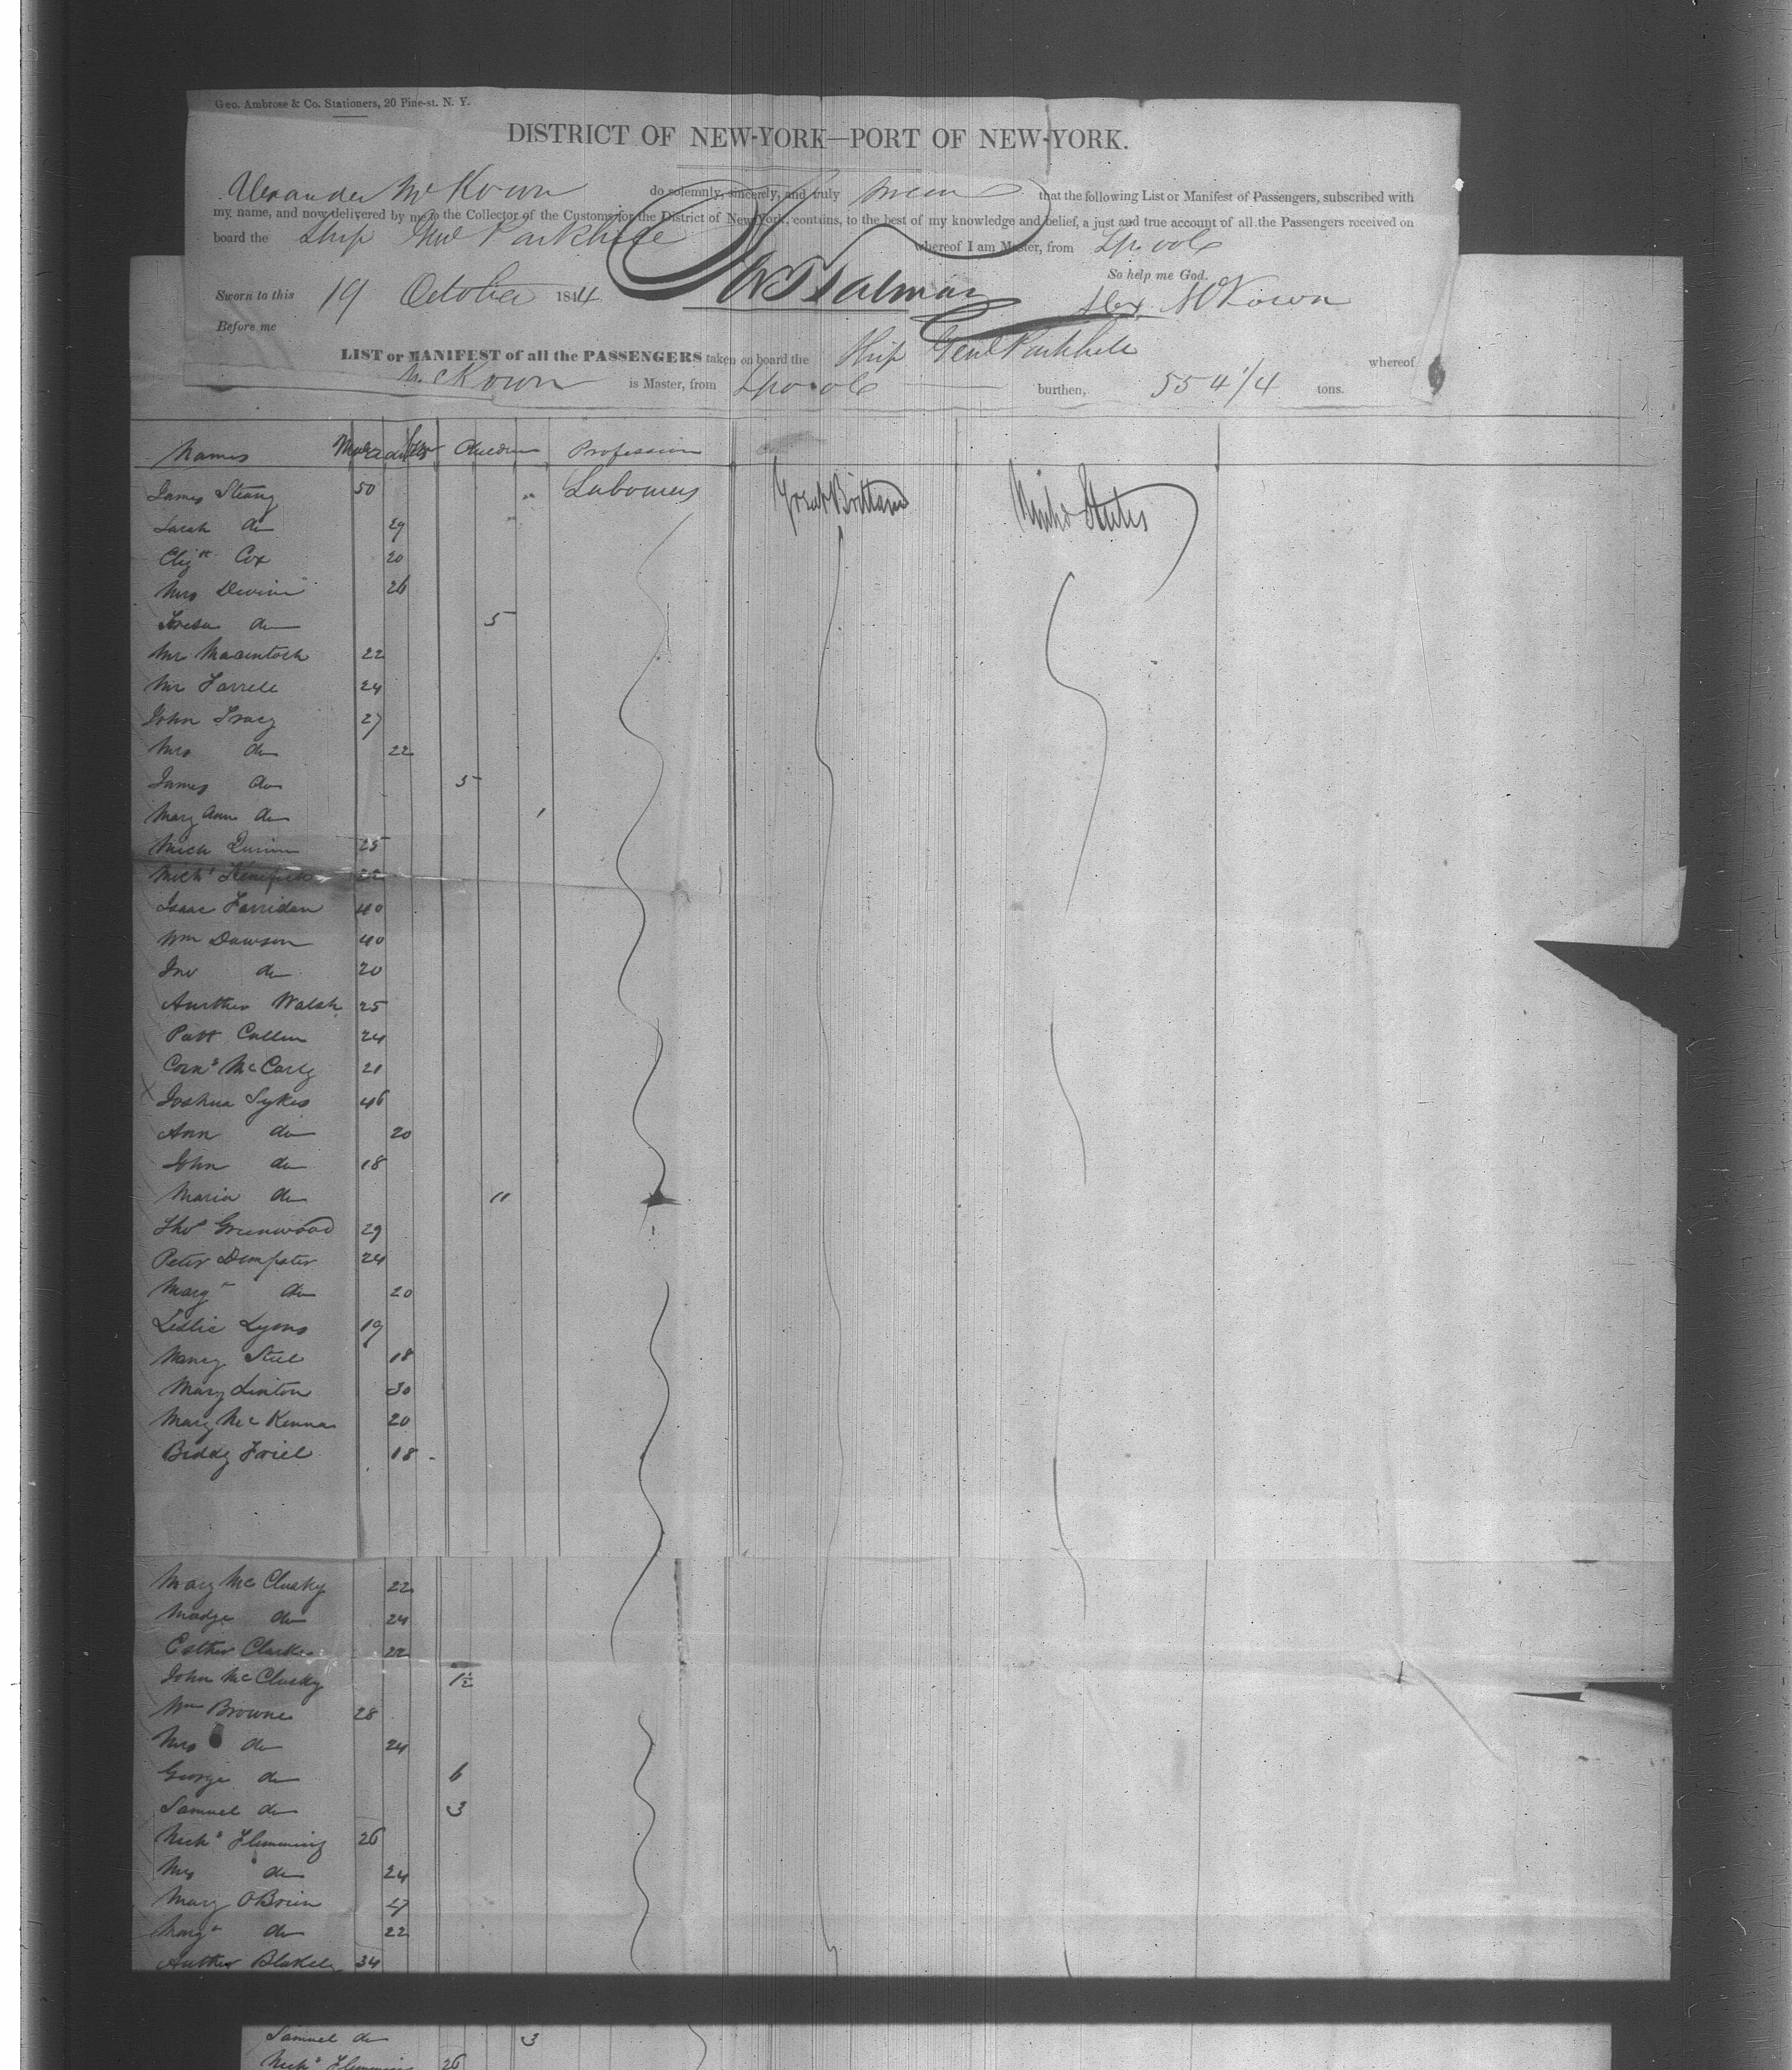 Geo. Ambrose & Co. Stationers, 20 Pine-st. N. Y.
DISTRICT OF NEW-YORK—PORT OF NEW-YORK.
Alexander McKown do solemnly, sincerely, and truly that the following List or Manifest of Passengers, subscribed with
my name, and now delivered by me to the Collector of the Customs for the District of New-York, contains, to the best of my knowledge and belief, a just and true account of all the Passengers received on
board the Ship Genl Parkhill whereof I am Master, from Lpoole
So help me God.
Sworn to this 19 October 1844. Alex McKown
Before me
LIST or MANIFEST of all the PASSENGERS taken on board the Ship Genl Parkhill whereof
McKown is Master, from Lpoole burthen, 554 1/4 tons.
Names Children Profession
James Strang 50 Labourers Great Brittain United States
Sarah do 29
Elizth Cox 20
Mrs Devine 26
Teresa do 5
Mr Macintosh 22
Mr Farrell 24
John Tracy 27
Mrs do 22
James do 5
Mary Ann do 1
Mich Quinn 25
Michl 22
Isaac Farridan 40
Wm Dawson 40
Jno do 20
Aurther Walsh 25
Patt Cullen 24
Corns McCarty 21
Joshua Sykes 46
Ann do 20
John do 18
Maria do 11
Thos Greenwood 29
Peter Dempster 24
Margt do 20
Leslie Lyons 19
Nancy Steel 18
Mary Linton 30
Mary McKenna 20
Biddy Friel 18
Mary McClusky 22
Madge do 24
Esther Clarke 22
John McClusky 1½
Wm Browne 28
Mrs do 24
George do 6
Samuel do 3
Nichs Flemming 26
Mrs do 24
Mary OBrien 47
Margt do 22
Auther Blakely 34
Samuel do 3
Nichs Flemming 26